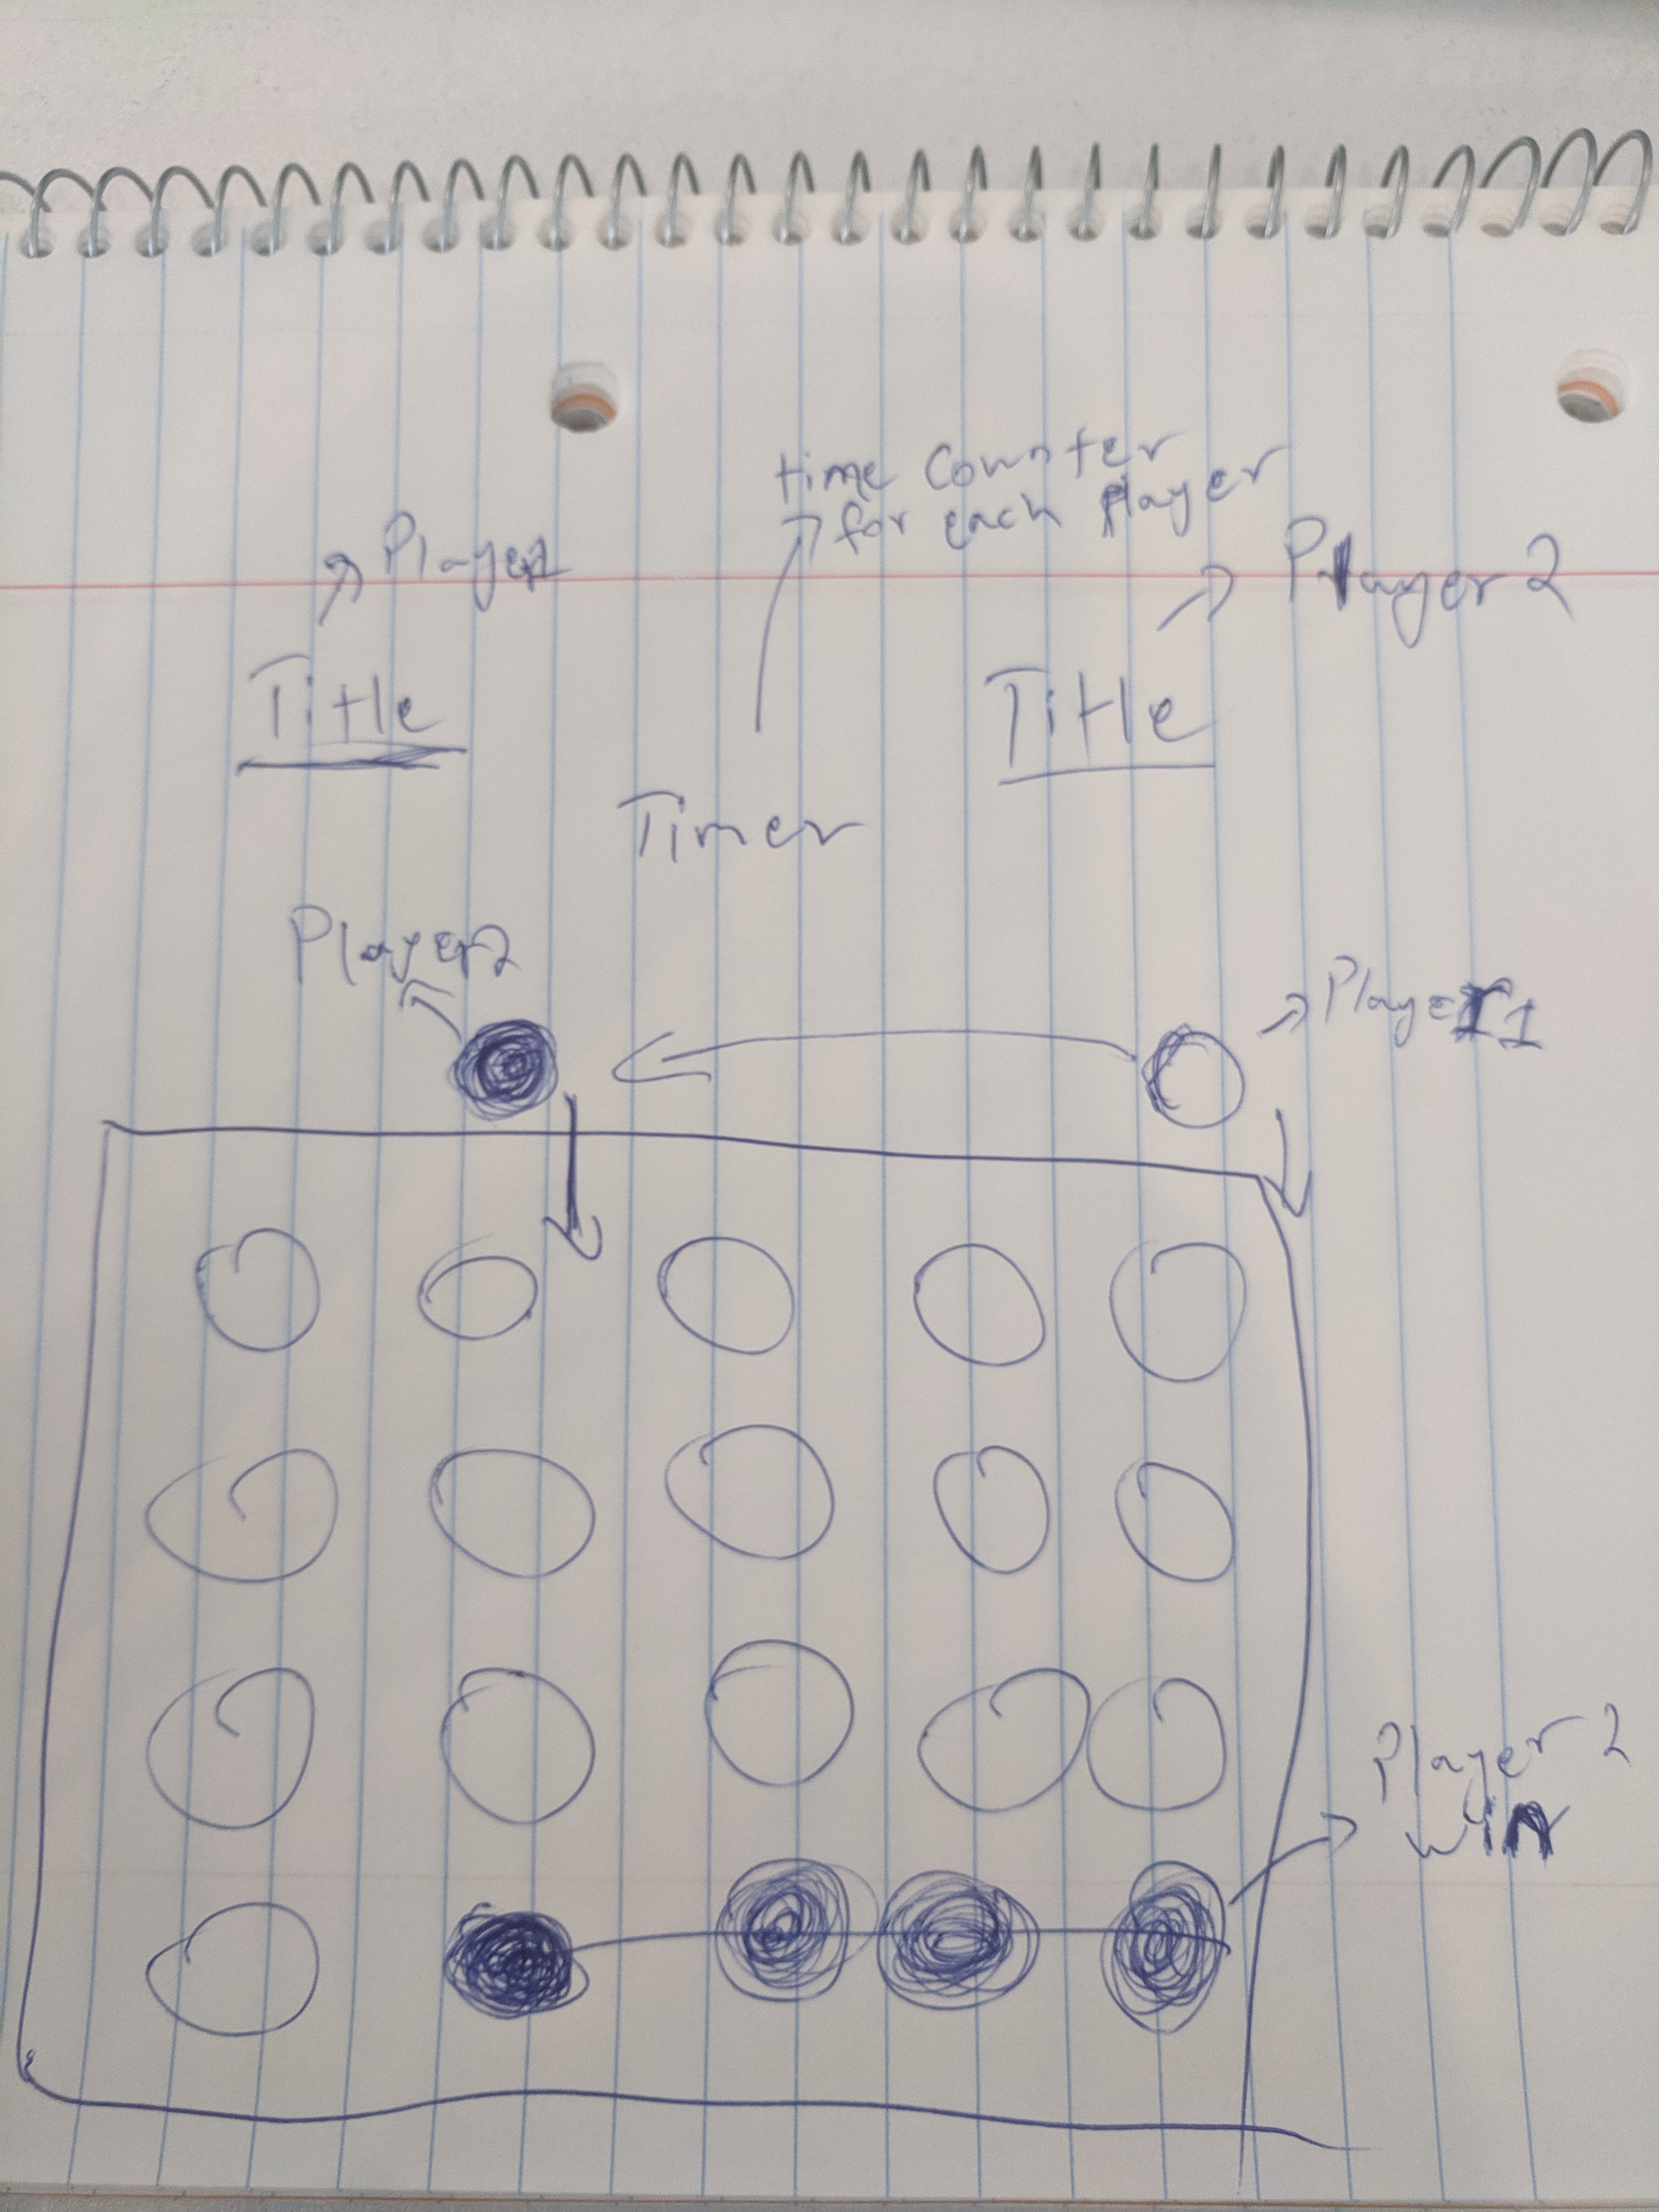 time counter
for each player
Player1
Player 2
Title
Title
Timer
Player2
Player 1
Player 2
win